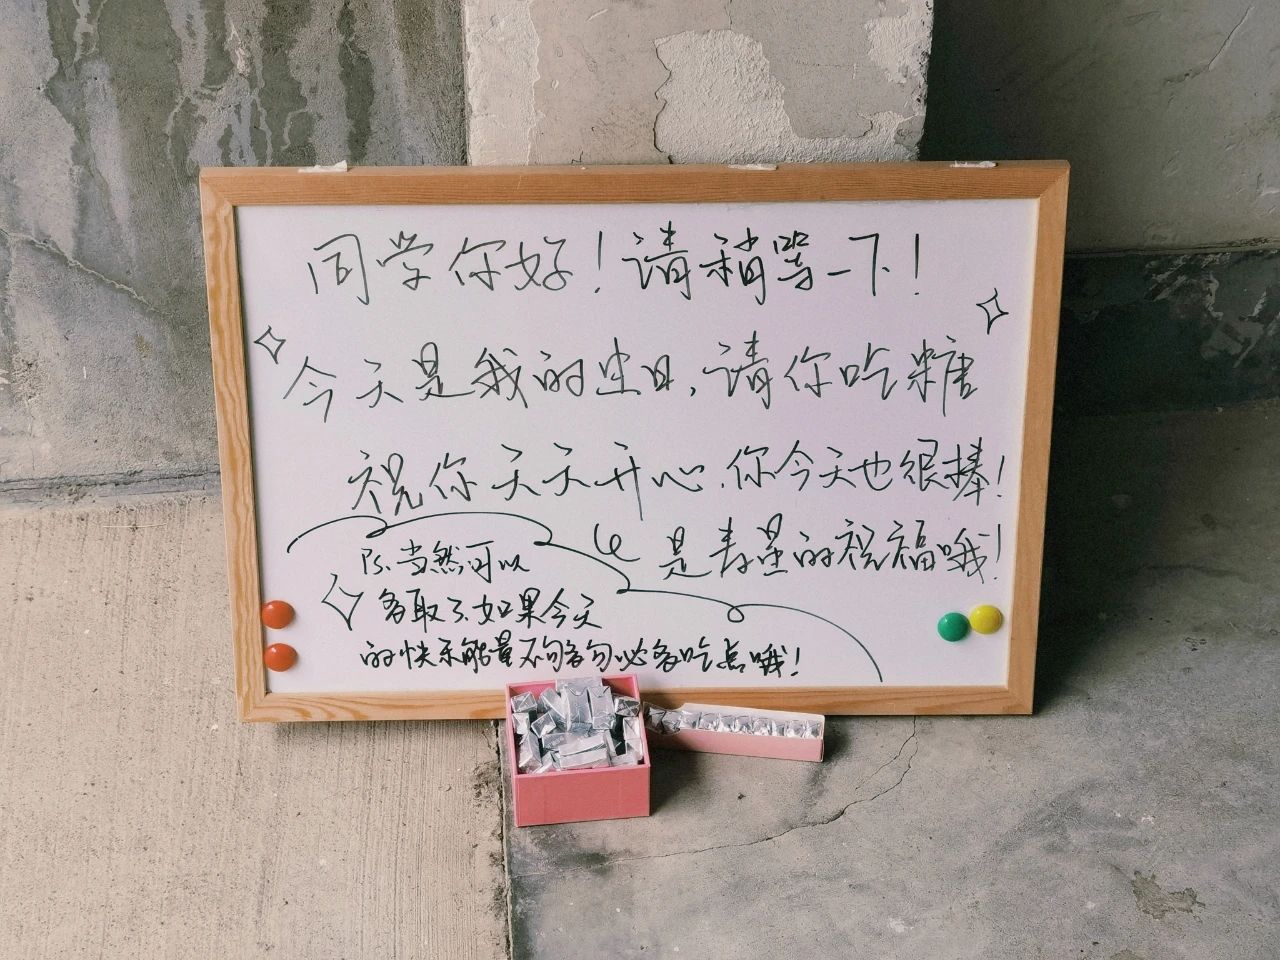 同学你好！请稍等一下！
今天是我的生日,请你吃糖
祝你天天开心.你今天也很棒！
是寿星的祝福哦！
Ps.当然可以
多取了.如果今天
的快乐能量不够多勿必多吃点哦！